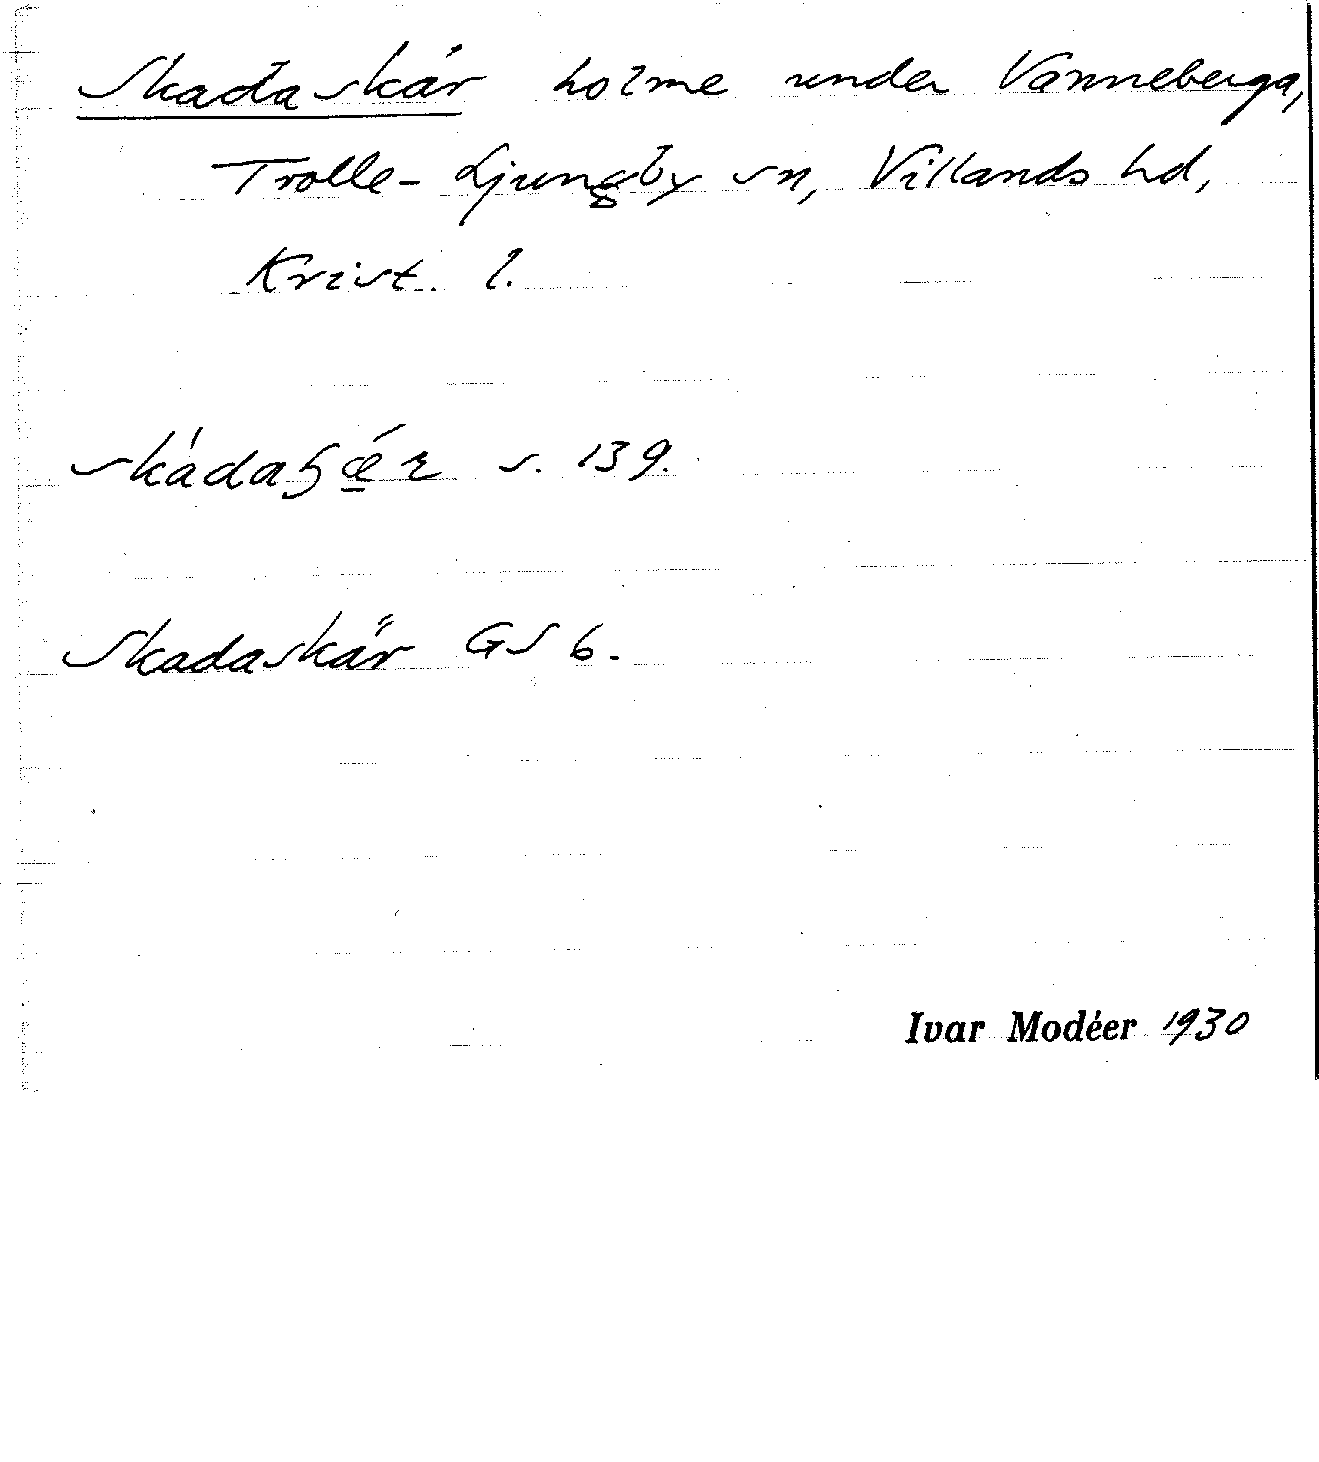 Skadaskär holme under Vanneberga,
Trolle-Ljungby sn, Villands hd,
Krist. l.
s. 139.
Skadaskär GS 6.
Ivar Modéer 1930